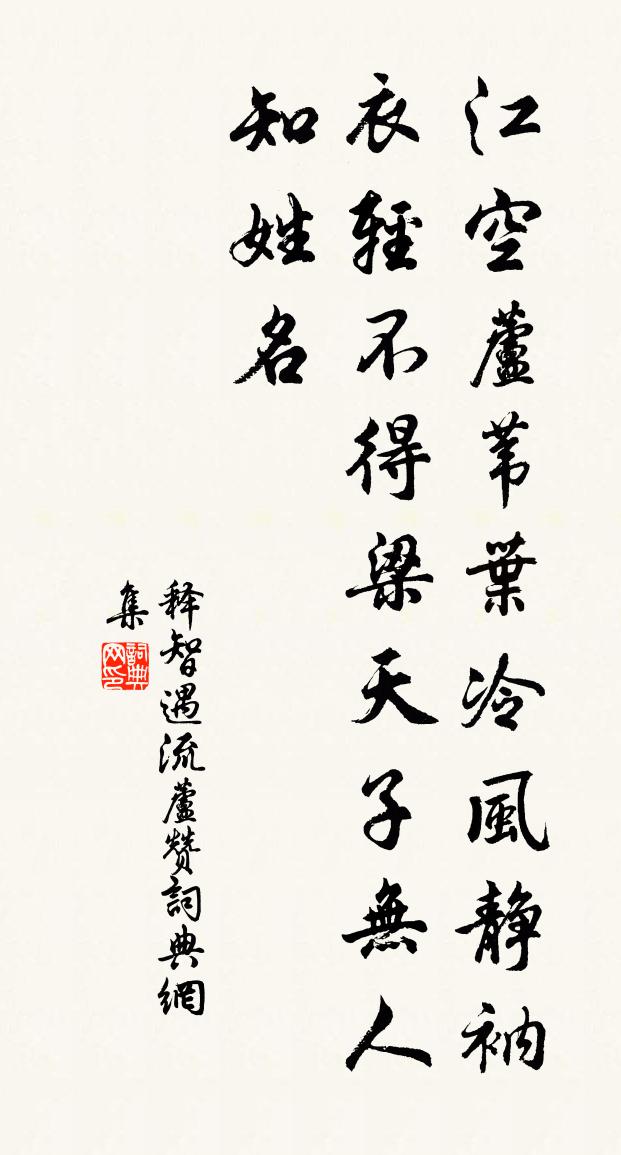 江空蘆苇葉冷風静衲
衣輕不得梁天子無人
知姓名
释智遇流蘆赞詞典網
集
詞典网印